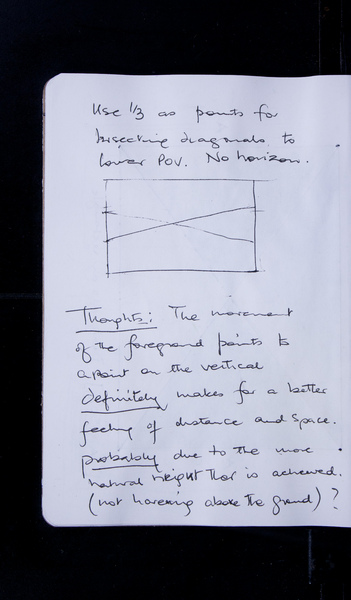 Use 1/3 as points for
bisecting diagonals to
lower POV. No horizon.
Thoughts: The movement
of the foreground points to
a point on the vertical
definitely makes for a better
feeling of distance and space.
probably due to the more
natural height that is achieved.
(not hovering above the ground)?